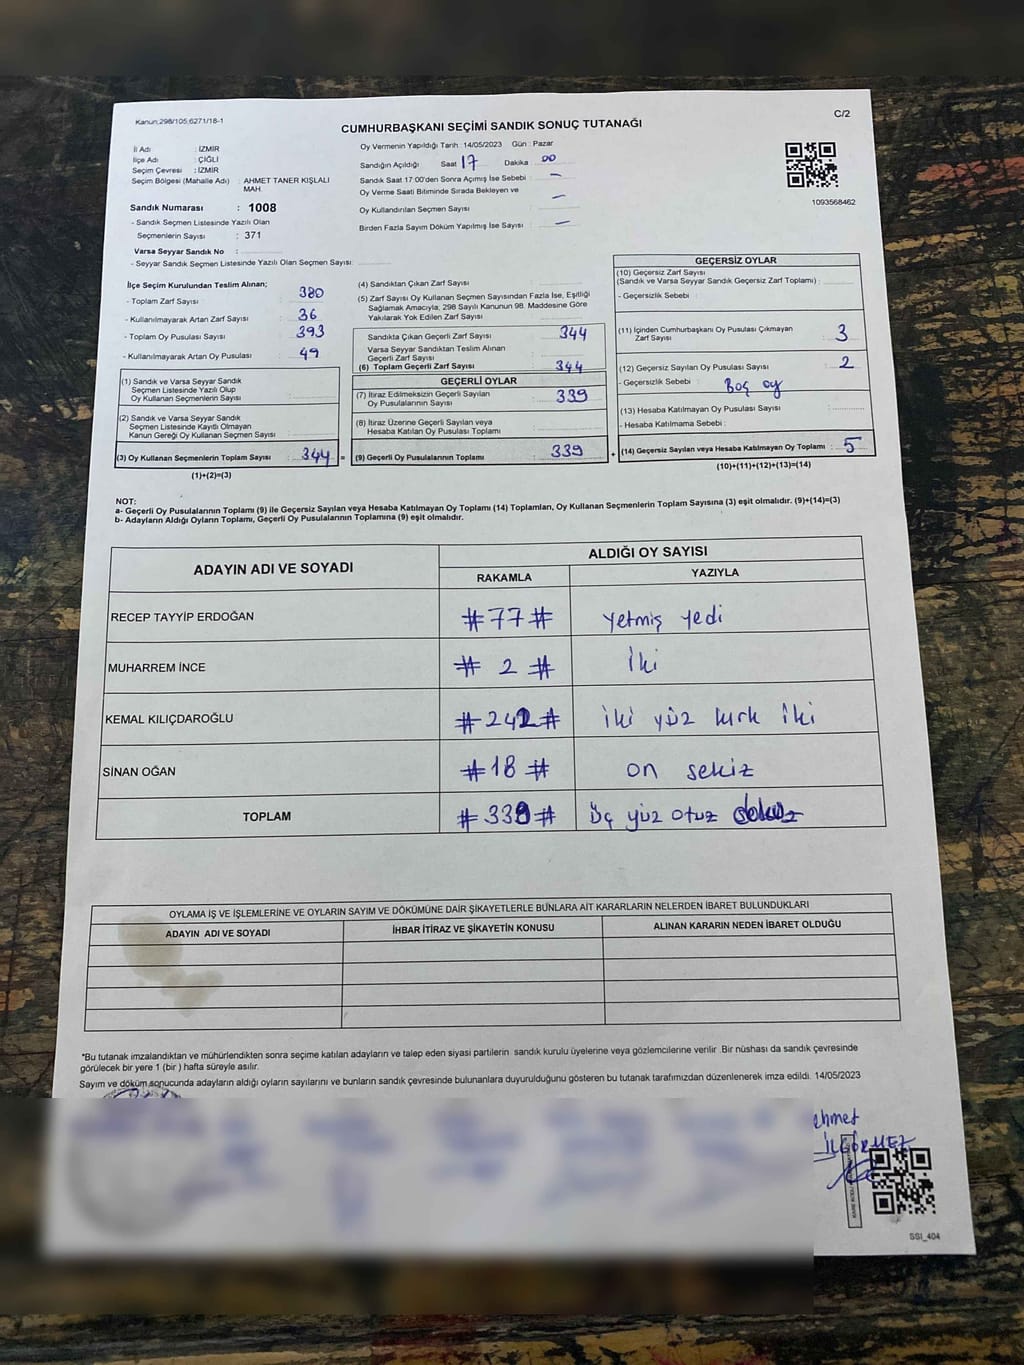 Kanun:298/105,6271/18-1
C/2
CUMHURBAŞKANI SEÇİMİ SANDIK SONUÇ TUTANAĞI
İl Adı : İZMİR
İlçe Adı : ÇİĞLİ
Seçim Çevresi : İZMİR
Seçim Bölgesi (Mahalle Adı) : AHMET TANER KIŞLALI MAH.
Sandık Numarası : 1008
- Sandık Seçmen Listesinde Yazılı Olan
Seçmenlerin Sayısı : 371
Varsa Seyyar Sandık No :
- Seyyar Sandık Seçmen Listesinde Yazılı Olan Seçmen Sayısı:
Oy Vermenin Yapıldığı Tarih : 14/05/2023 Gün : Pazar
Sandığın Açıldığı Saat 17 Dakika 00
Sandık Saat 17:00'den Sonra Açımış İse Sebebi : –
Oy Verme Saati Bitiminde Sırada Bekleyen ve
Oy Kullandırılan Seçmen Sayısı –
Birden Fazla Sayım Döküm Yapılmış İse Sayısı : –
1093568462
İlçe Seçim Kurulundan Teslim Alınan;
- Toplam Zarf Sayısı : 380
- Kullanılmayarak Artan Zarf Sayısı : 36
- Toplam Oy Pusulası Sayısı : 393
- Kullanılmayarak Artan Oy Pusulası : 49
(1) Sandık ve Varsa Seyyar Sandık
Seçmen Listesinde Yazılı Olup
Oy Kullanan Seçmenlerin Sayısı :
(2) Sandık ve Varsa Seyyar Sandık
Seçmen Listesinde Kayıtlı Olmayan
Kanun Gereği Oy Kullanan Seçmen Sayısı :
(3) Oy Kullanan Seçmenlerin Toplam Sayısı : 344 =
(1)+(2)=(3)
(4) Sandıktan Çıkan Zarf Sayısı :
(5) Zarf Sayısı Oy Kullanan Seçmen Sayısından Fazla İse, Eşitliği
Sağlamak Amacıyla, 298 Sayılı Kanunun 98. Maddesine Göre
Yakılarak Yok Edilen Zarf Sayısı :
Sandıkta Çıkan Geçerli Zarf Sayısı : 344
Varsa Seyyar Sandıktan Teslim Alınan
Geçerli Zarf Sayısı :
(6) Toplam Geçerli Zarf Sayısı : 344
GEÇERLİ OYLAR
(7) İtiraz Edilmeksizin Geçerli Sayılan
Oy Pusulalarının Sayısı : 339
(8) İtiraz Üzerine Geçerli Sayılan veya
Hesaba Katılan Oy Pusulası Toplamı :
(9) Geçerli Oy Pusulalarının Toplamı : 339 +
GEÇERSİZ OYLAR
(10) Geçersiz Zarf Sayısı
(Sandık ve Varsa Seyyar Sandık Geçersiz Zarf Toplamı) :
- Geçersizlik Sebebi :
(11) İçinden Cumhurbaşkanı Oy Pusulası Çıkmayan
Zarf Sayısı : 3
(12) Geçersiz Sayılan Oy Pusulası Sayısı : 2
- Geçersizlik Sebebi : Boş oy
(13) Hesaba Katılmayan Oy Pusulası Sayısı :
- Hesaba Katılmama Sebebi :
(14) Geçersiz Sayılan veya Hesaba Katılmayan Oy Toplamı : 5
(10)+(11)+(12)+(13)=(14)
NOT:
a- Geçerli Oy Pusulalarının Toplamı (9) ile Geçersiz Sayılan veya Hesaba Katılmayan Oy Toplamı (14) Toplamları, Oy Kullanan Seçmenlerin Toplam Sayısına (3) eşit olmalıdır. (9)+(14)=(3)
b- Adayların Aldığı Oyların Toplamı, Geçerli Oy Pusulalarının Toplamına (9) eşit olmalıdır.
ADAYIN ADI VE SOYADI
ALDIĞI OY SAYISI
RAKAMLA YAZIYLA
RECEP TAYYİP ERDOĞAN #77# Yetmiş yedi
MUHARREM İNCE # 2 # İki
KEMAL KILIÇDAROĞLU #242# iki yüz kırk iki
SİNAN OĞAN #18# on sekiz
TOPLAM #339# Üç yüz otuz dokuz
OYLAMA İŞ VE İŞLEMLERİNE VE OYLARIN SAYIM VE DÖKÜMÜNE DAİR ŞİKAYETLERLE BUNLARA AİT KARARLARIN NELERDEN İBARET BULUNDUKLARI
ADAYIN ADI VE SOYADI İHBAR İTİRAZ VE ŞİKAYETİN KONUSU ALINAN KARARIN NEDEN İBARET OLDUĞU
*Bu tutanak imzalandıktan ve mühürlendikten sonra seçime katılan adayların ve talep eden siyasi partilerin sandık kurulu üyelerine veya gözlemcilerine verilir .Bir nüshası da sandık çevresinde
görülecek bir yere 1 (bir ) hafta süreyle asılır.
Sayım ve döküm sonucunda adayların aldığı oyların sayılarını ve bunların sandık çevresinde bulunanlara duyurulduğunu gösteren bu tutanak tarafımızdan düzenlenerek imza edildi. 14/05/2023
ehmet
İLGÖRMEZ
SSI_404